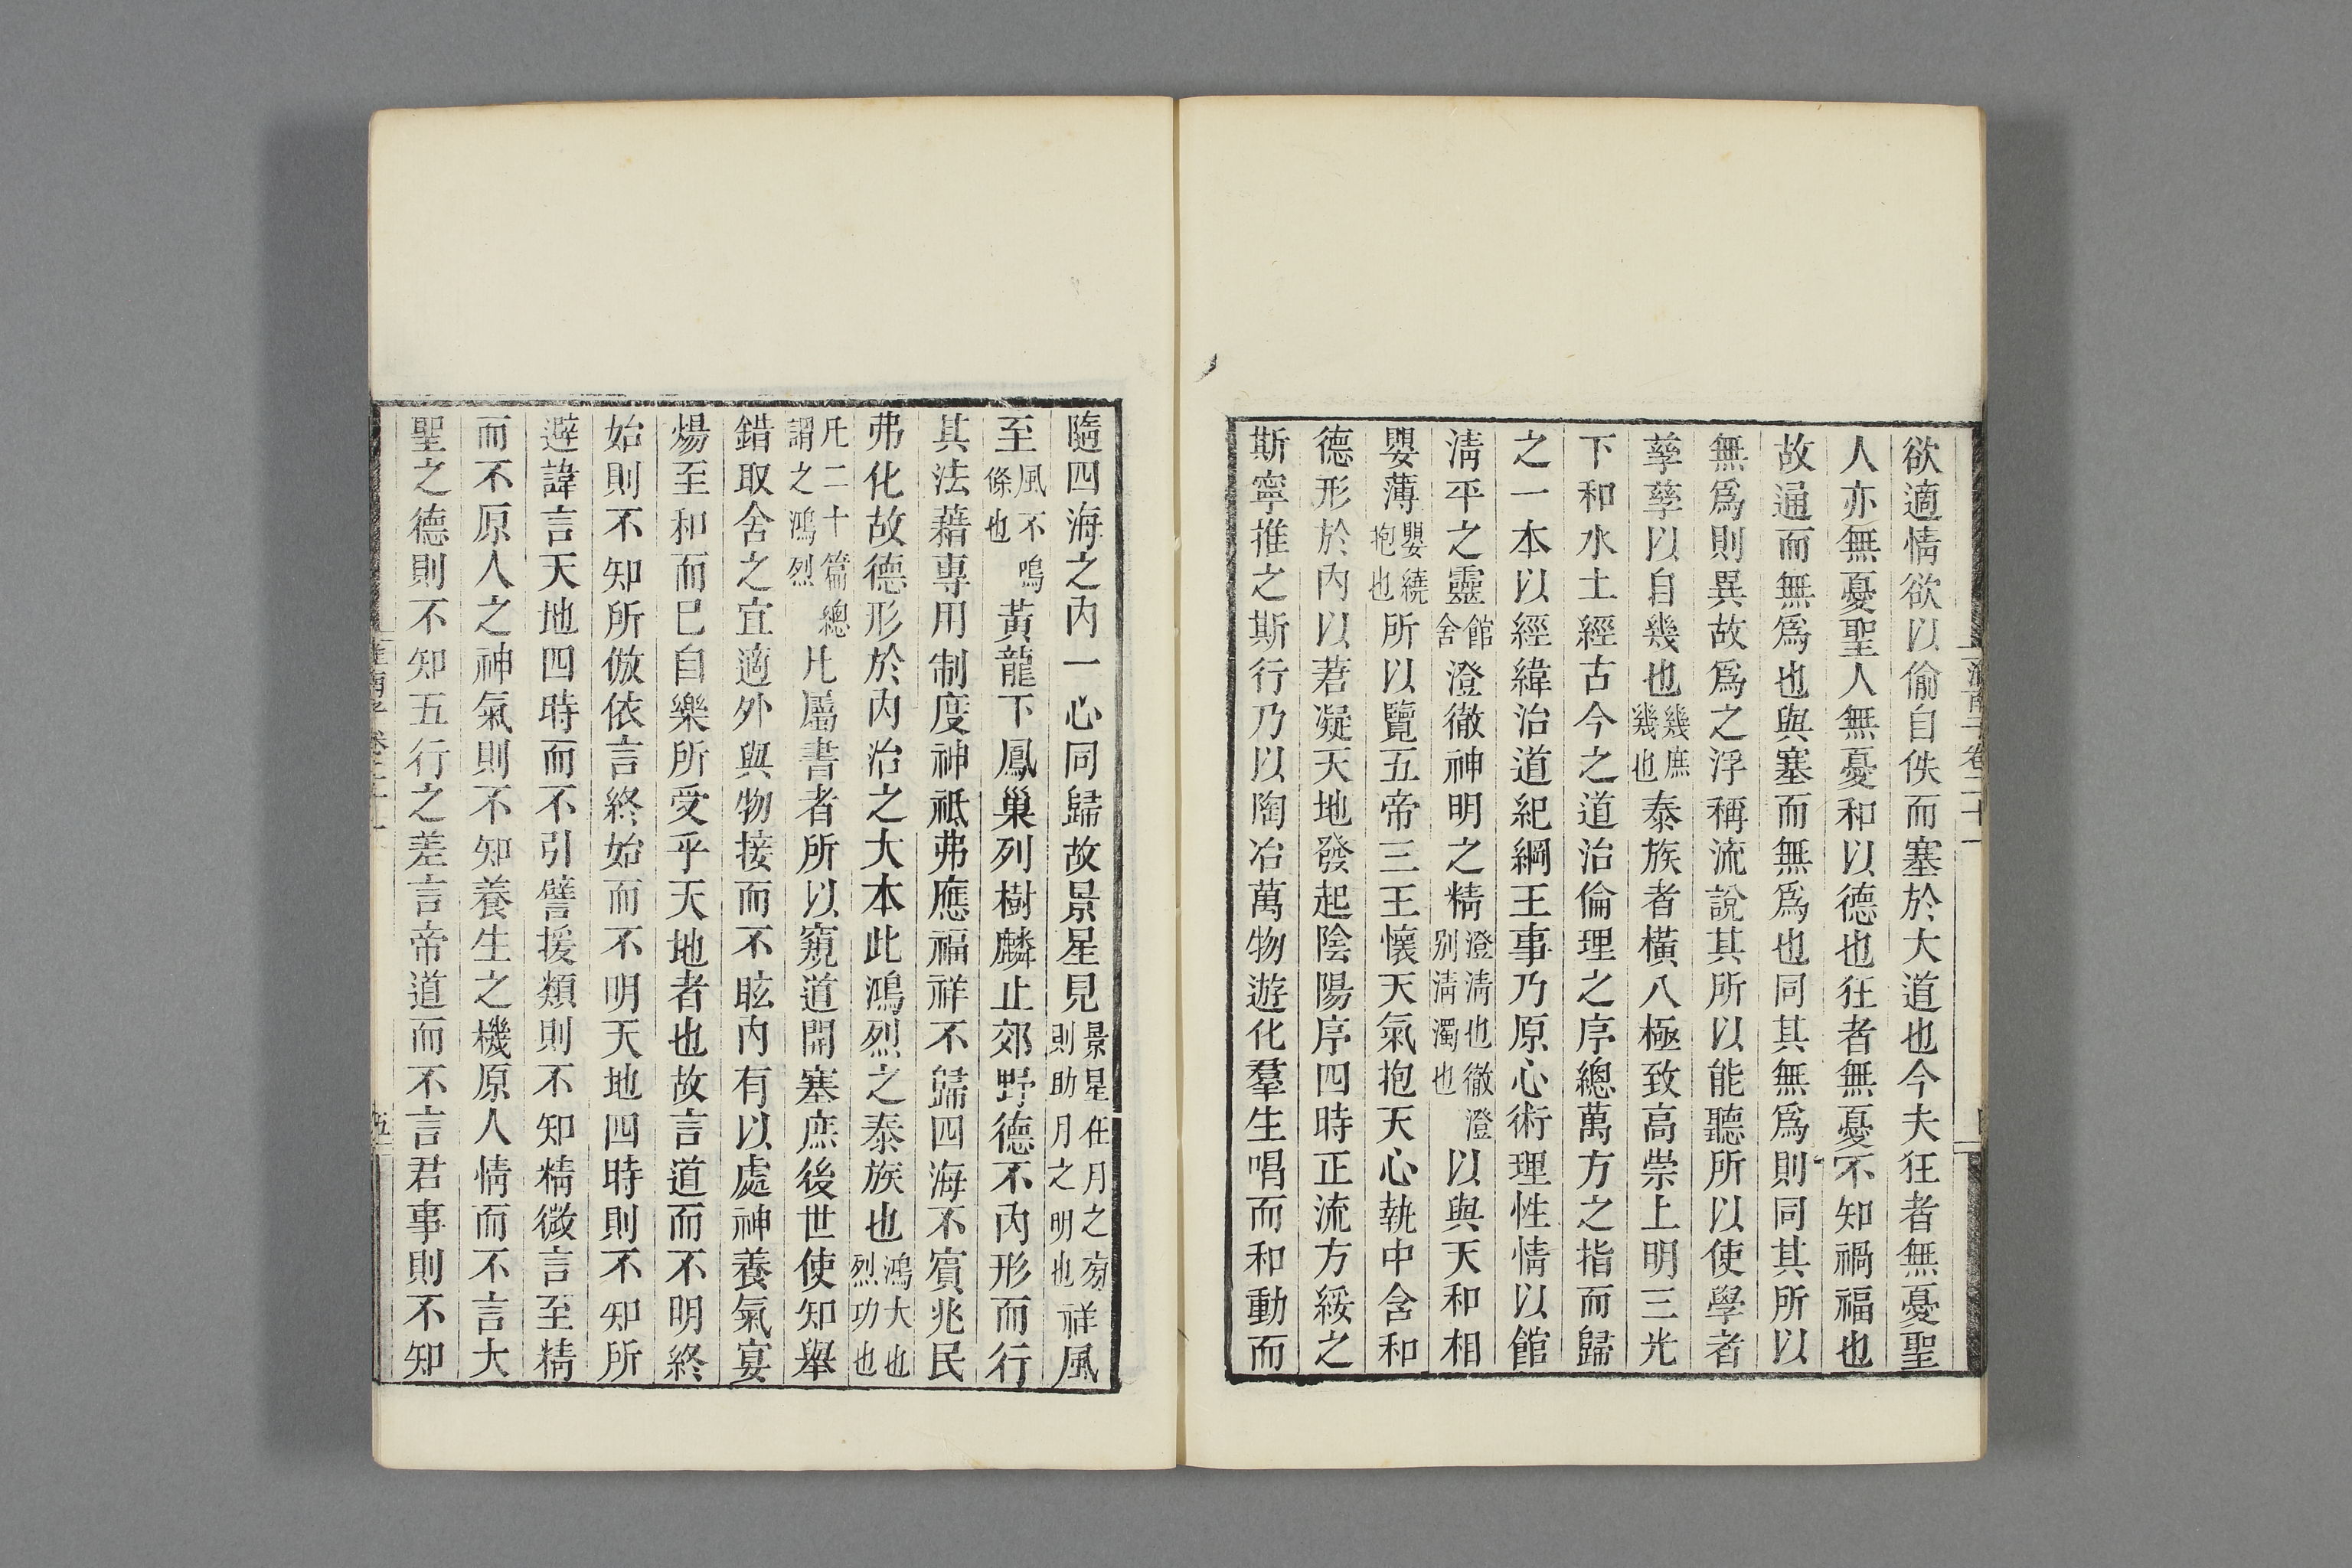 欲適情欲以偷自佚而塞於大道也今夫狂者無憂聖
人亦無憂聖人無憂和以德也狂者無憂不知禍福也
故通而無爲也與塞而無爲也同其無爲則同其所以
無爲則異故爲之浮稱流說其所以能聽所以使學者
孳孳以自幾也幾庶幾也泰族者橫八極致高崇上明三光
下和水土經古今之道治倫理之序總萬方之指而歸
之一本以經緯治道紀綱王事乃原心術理性情以館
淸平之靈館舍澄徹神明之精澄淸也徹澄别淸濁也以與天和相
嬰薄嬰繞抱也所以覽五帝三王懷天氣抱天心執中含和
德形於內以莙凝天地發起陰陽序四時正流方綏之
斯寧推之斯行乃以陶冶萬物遊化羣生唱而和動而
隨四海之內一心同歸故景星見景星在月之旁則助月之明也祥風
至風不鳴條也黃龍下鳳巢列樹麟止郊野德不內形而行
其法藉專用制度神祇弗應福祥不歸四海不賓兆民
弗化故德形於內治之大本此鴻烈之泰族也鴻大也烈功也
凡二十篇總謂之鴻烈凡屬書者所以窺道開塞庶後世使知舉
錯取舍之宜適外與物接而不眩內有以處神養氣宴
煬至和而已自樂所受乎天地者也故言道而不明終
始則不知所倣依言終始而不明天地四時則不知所
避諱言天地四時而不引譬援類則不知精微言至精
而不原人之神氣則不知養生之機原人情而不言大
聖之德則不知五行之差言帝道而不言君事則不知